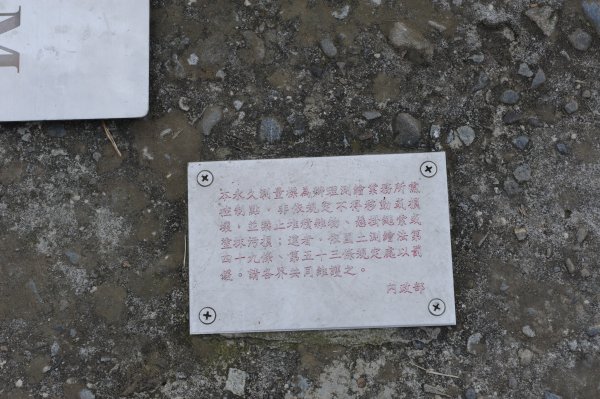 本永久測量標為辦理測繪業務所需
控制點，非依規定不得移動或損
壞，並禁止堆積雜物、懸掛繩索或
塗抹污損；違者，依國土測繪法第
四十九條、第五十三條規定處以罰
鍰。請各界共同維護之。
內政部
M